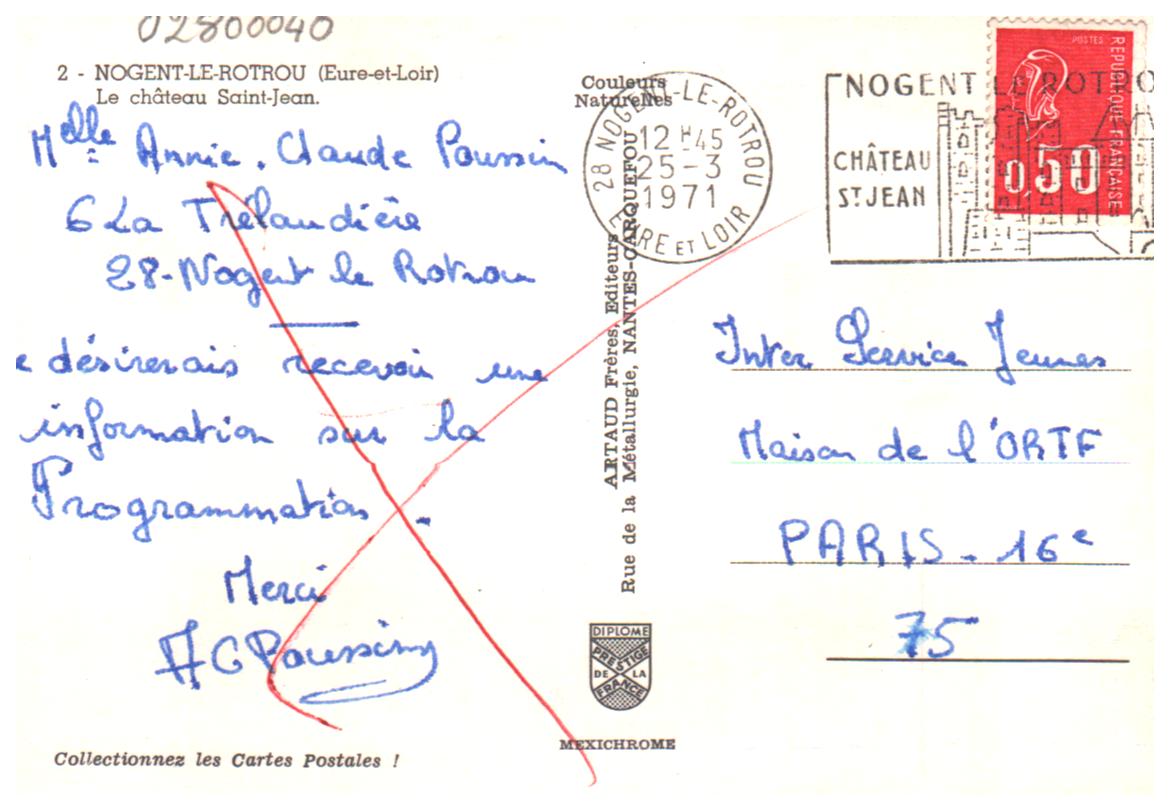 02800040
2 - NOGENT-LE-ROTROU (Eure-et-Loir)
Le château Saint-Jean.
Melle Annie. Claude Poussin
6 La Trélaudière
28-Nogent le Rotrou
e désirerais recevoir une
information sur la
Programmation.
Merci
AC Poussin
Collectionnez les Cartes Postales !
Couleurs
Naturelles
ARTAUD Frères, Editeurs
Rue de la Métallurgie, NANTES-CARQUEFOU
DIPLOME
PRESTIGE
DE LA
FRANCE
MEXICHROME
28 NOGENT-LE-ROTROU
12 H 45
25-3
1971
EURE ET LOIR
NOGENT LE ROTRO
CHÂTEAU
ST JEAN
POSTES
REPUBLIQUE FRANÇAISE
0,50
Inter Service Jeunes
Maison de l'ORTF
PARIS - 16e
75